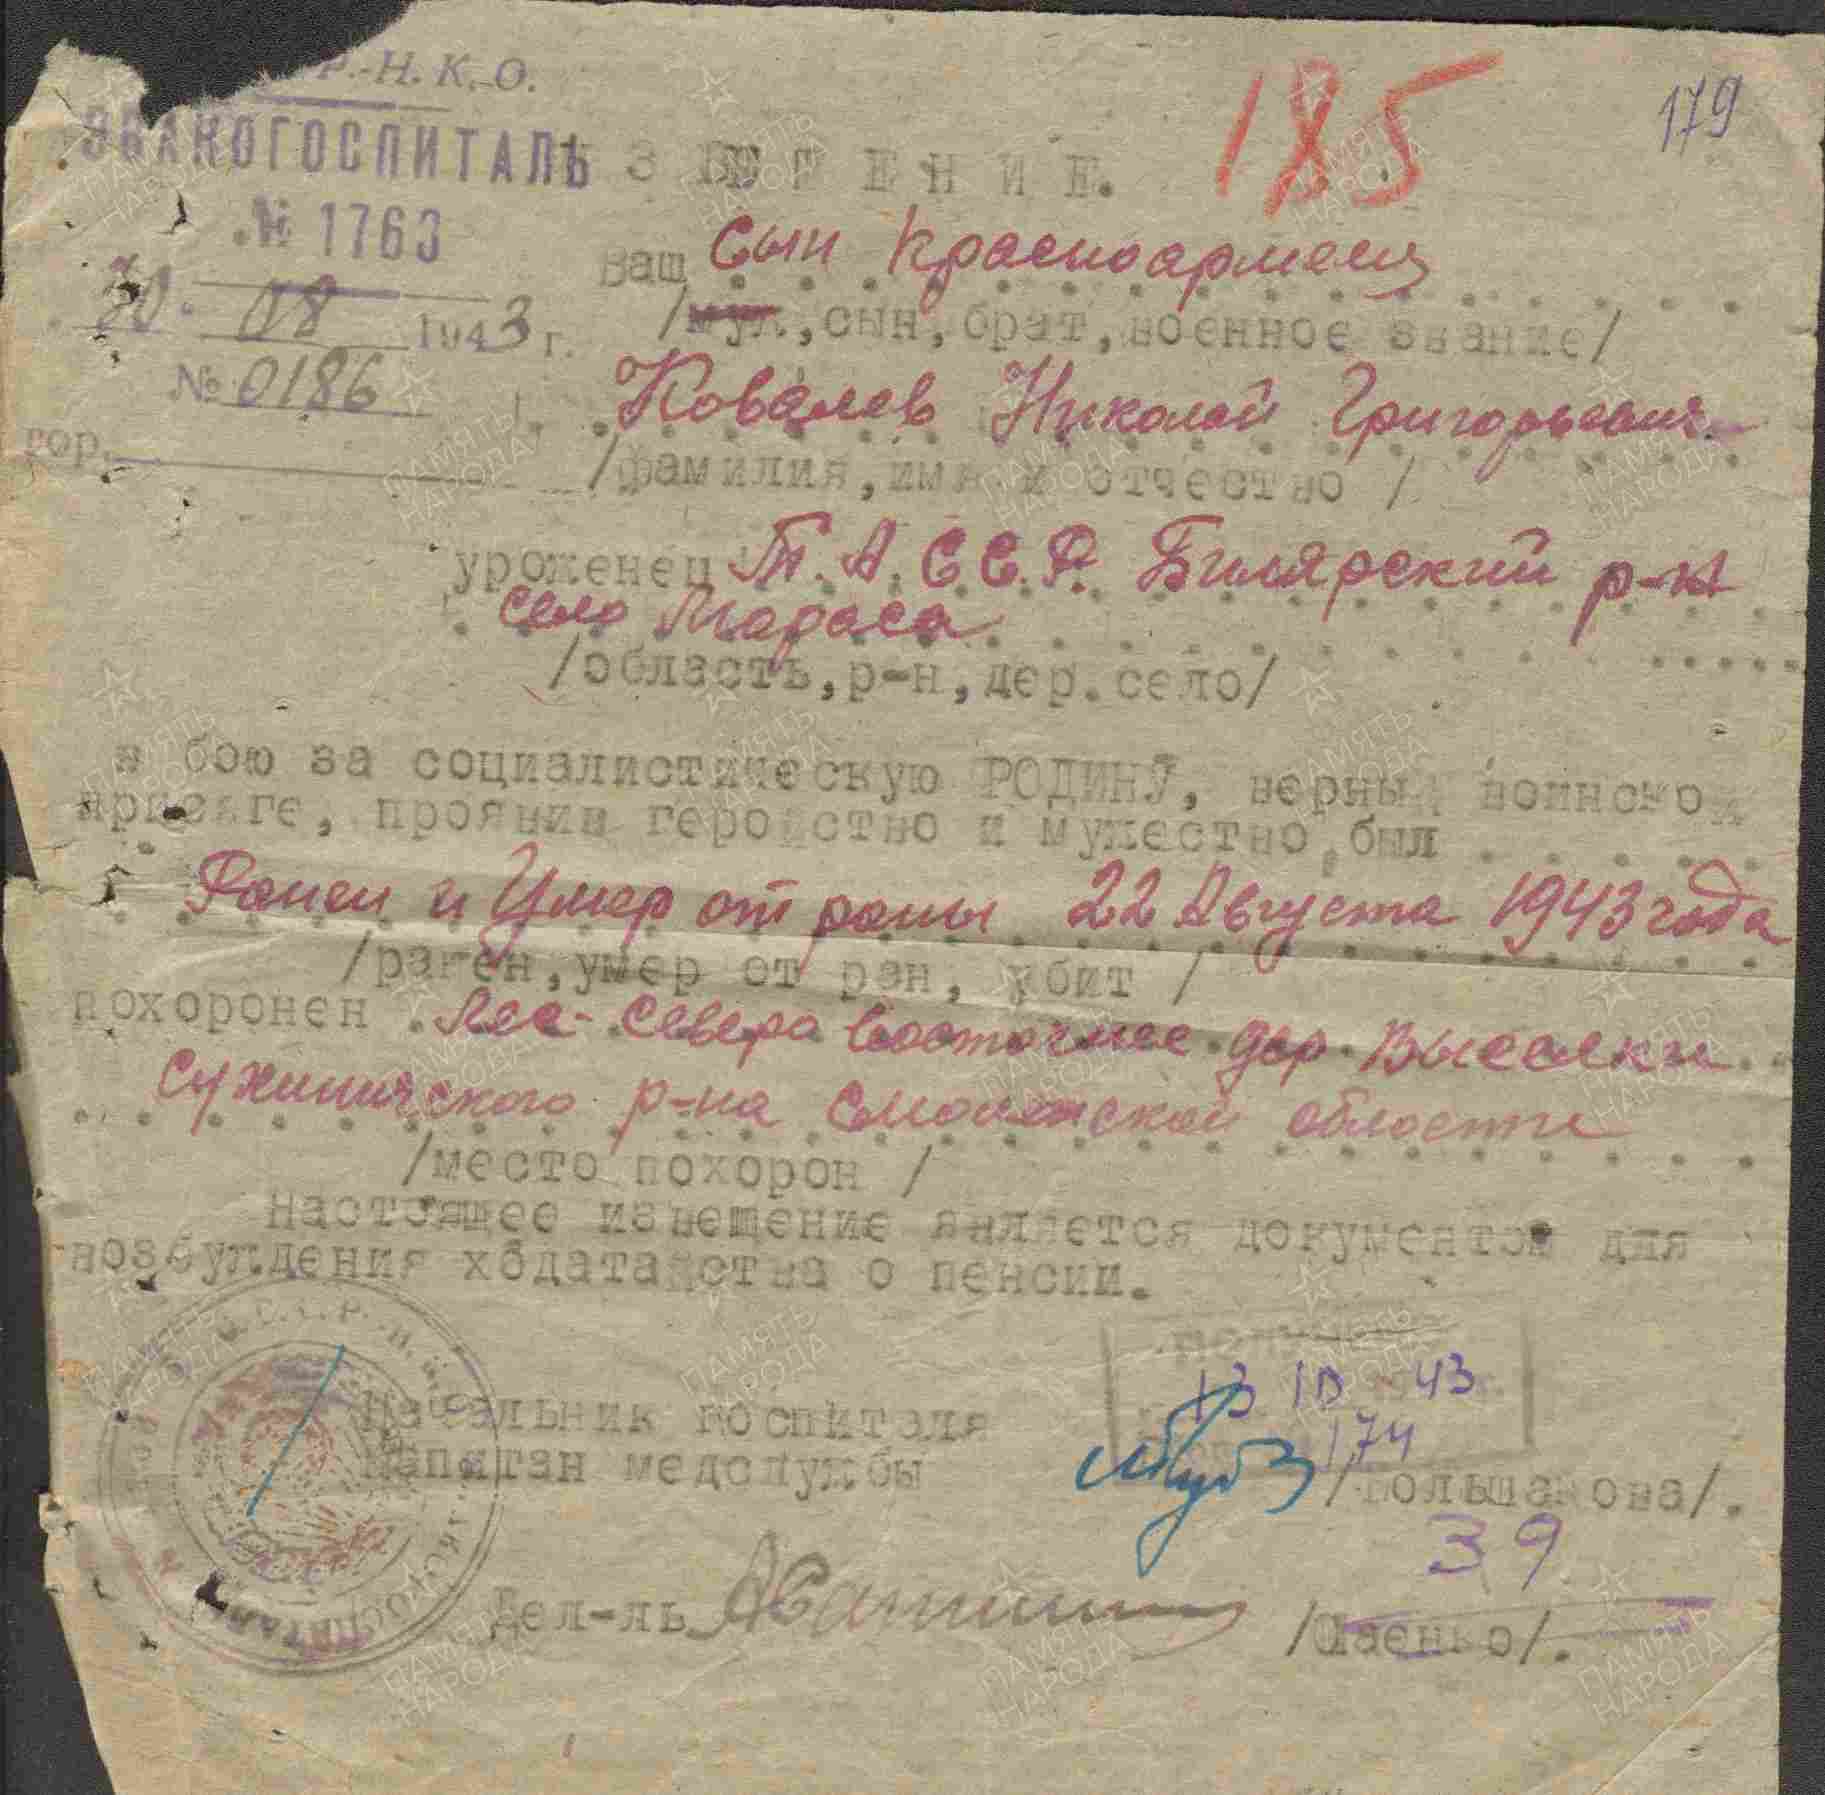 Р.-Н. К.-О.
ЭВАКОГОСПИТАЛЬ
№ 1763
30. 08 1943 г.
№ 0186
гор.
ИЗВЕЩЕНИЕ.
185
179
Ваш сын Красноармеец
/муж, сын, брат, военное звание/
Ковалев Николай Григорьевич
/фамилия, имя и отчество /
уроженец Т. А. С С. Р. Билярский р-н
село Мараса
/область, р-н, дер. село/
в бою за социалистическую РОДИНУ, верный воинской
присяге, проявив геройство и мужество, был
Ранен и Умер от раны 22 Августа 1943 года
/ранен, умер от ран, убит /
похоронен лес- северо восточнее дер Выселки
Сухиничского р-на Смоленской области
/место похорон /
Настоящее извещение является документом для
возбуждения ходатайства о пенсии.
13 10 43
174
Начальник госпиталя
капитан медслужбы /Большакова/.
39
Дел-ль /Шаенко/.
ПАМЯТЬ НАРОДА